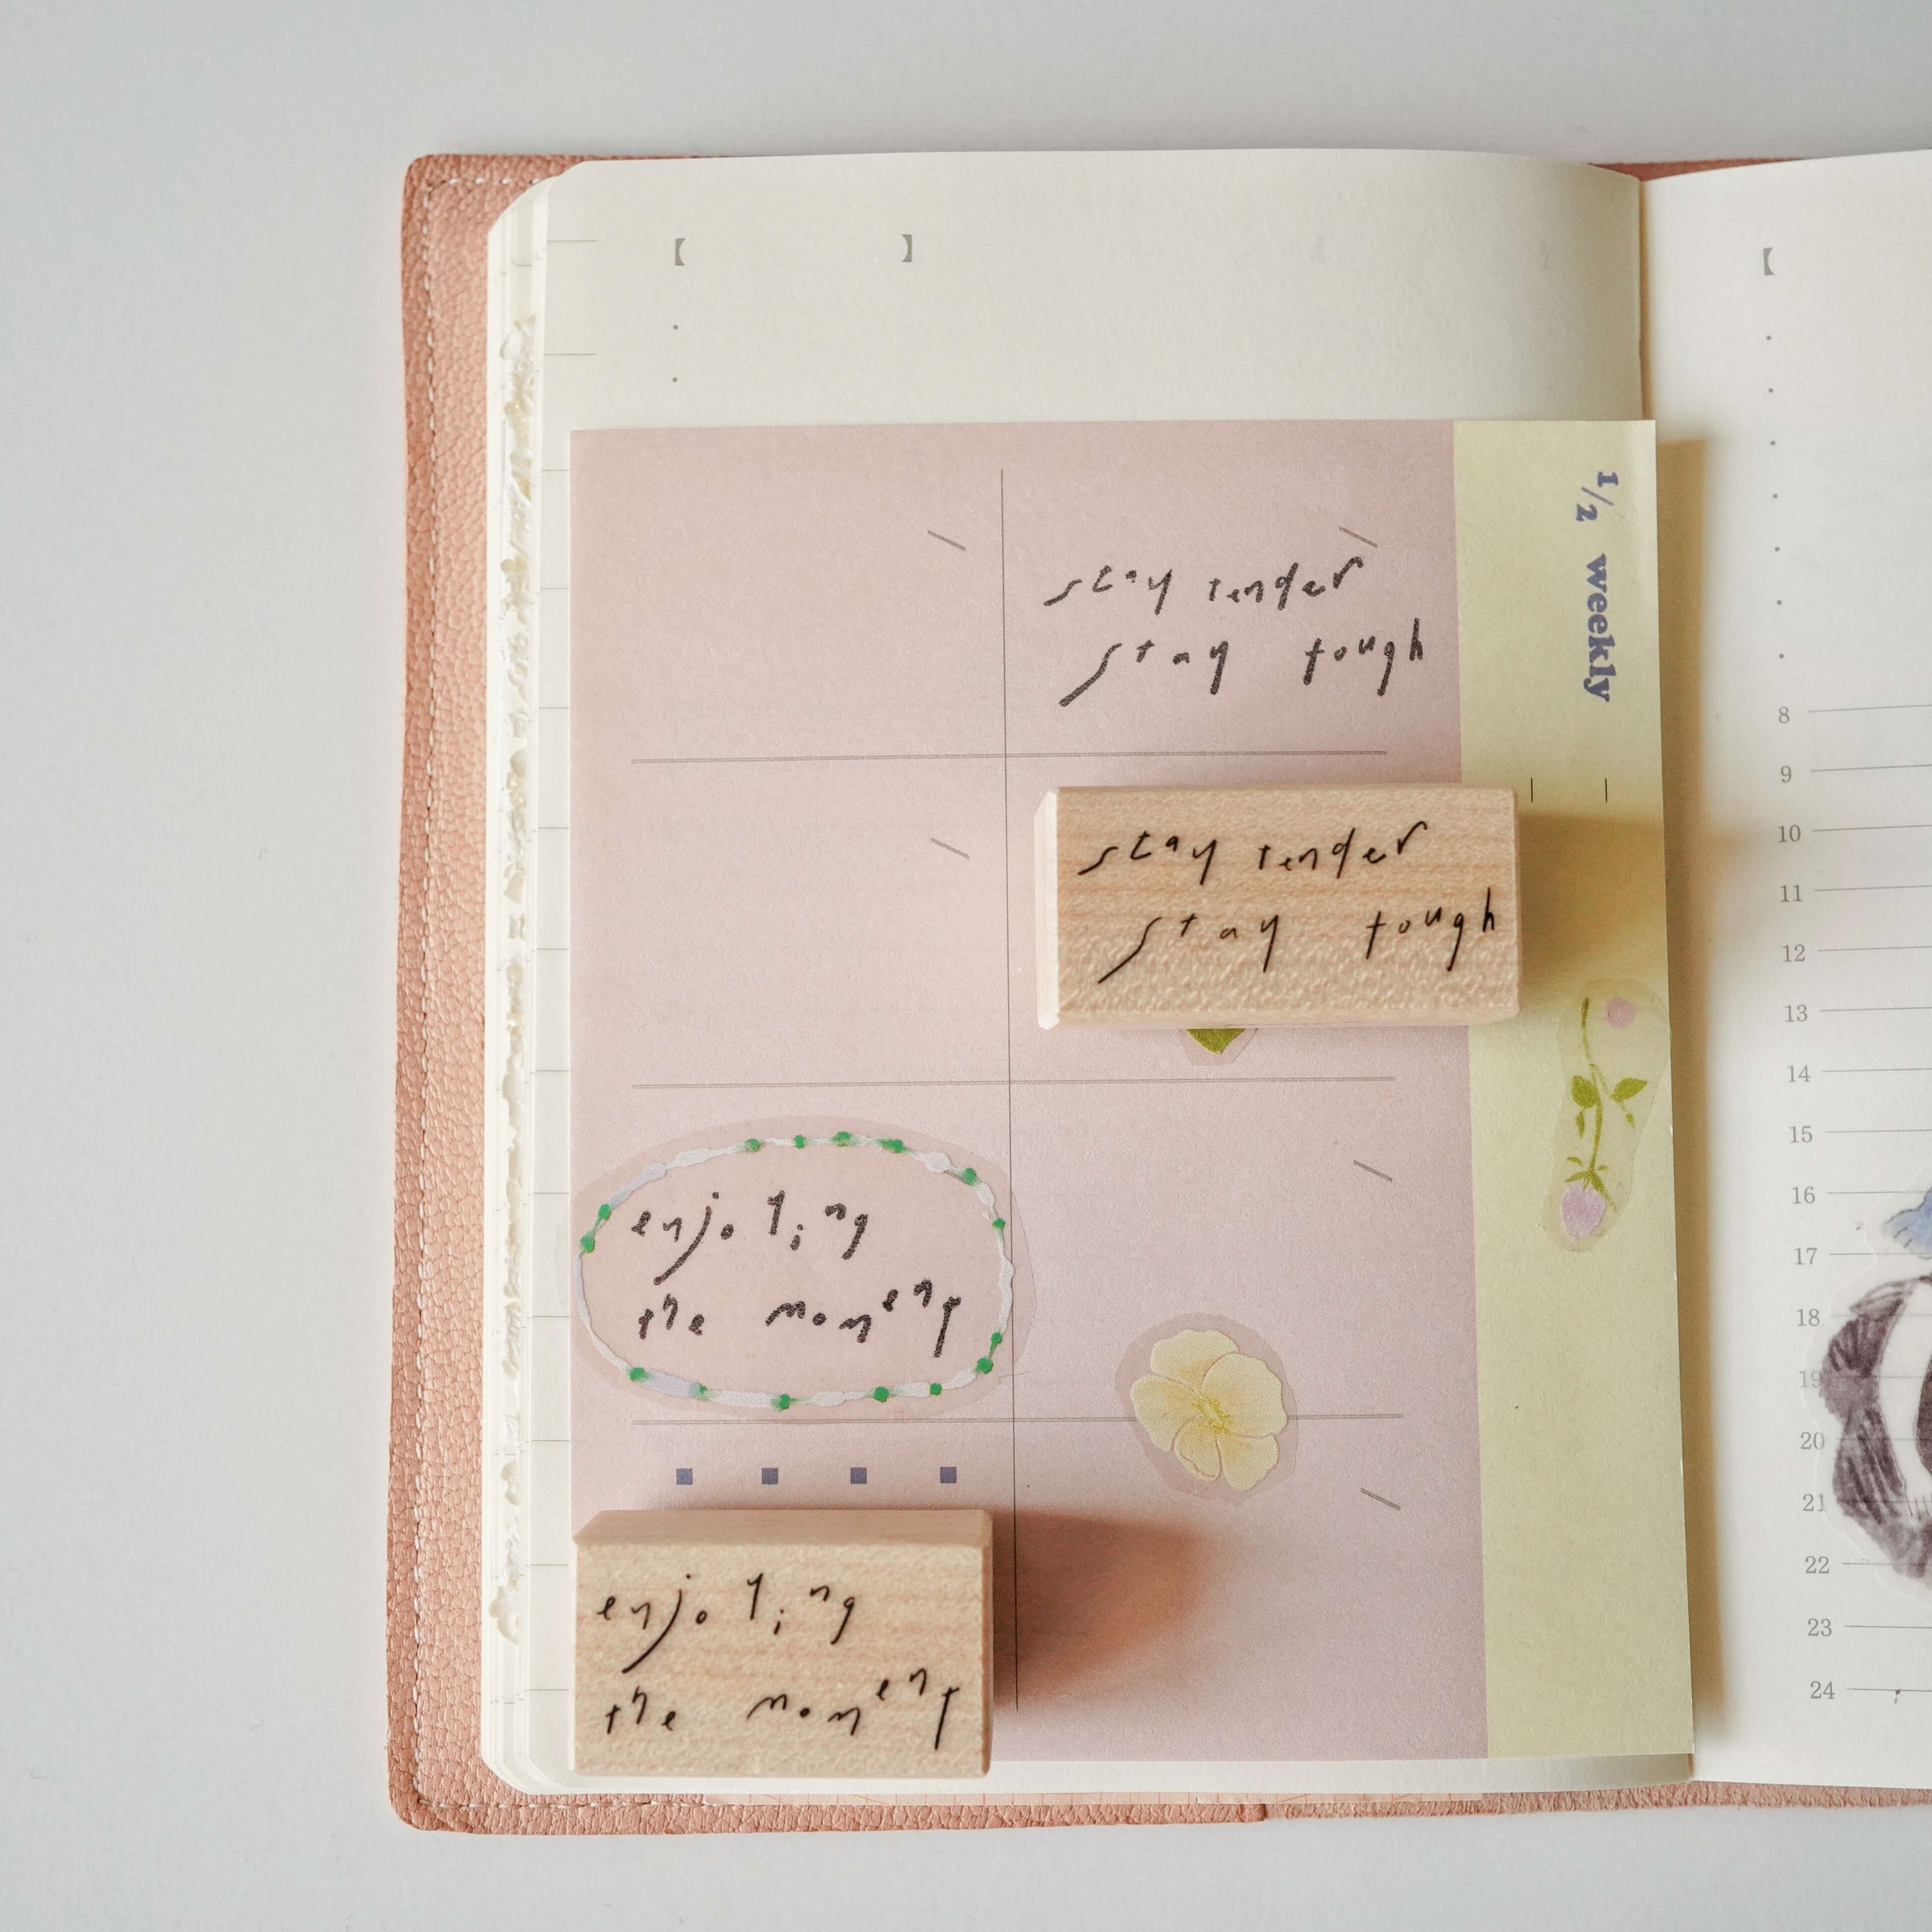 【 】
【
1/2 weekly
stay tender
stay tough
stay tender
stay tough
enjoying
the moment
enjoying
the moment
8
9
10
11
12
13
14
15
16
17
18
19
20
21
22
23
24